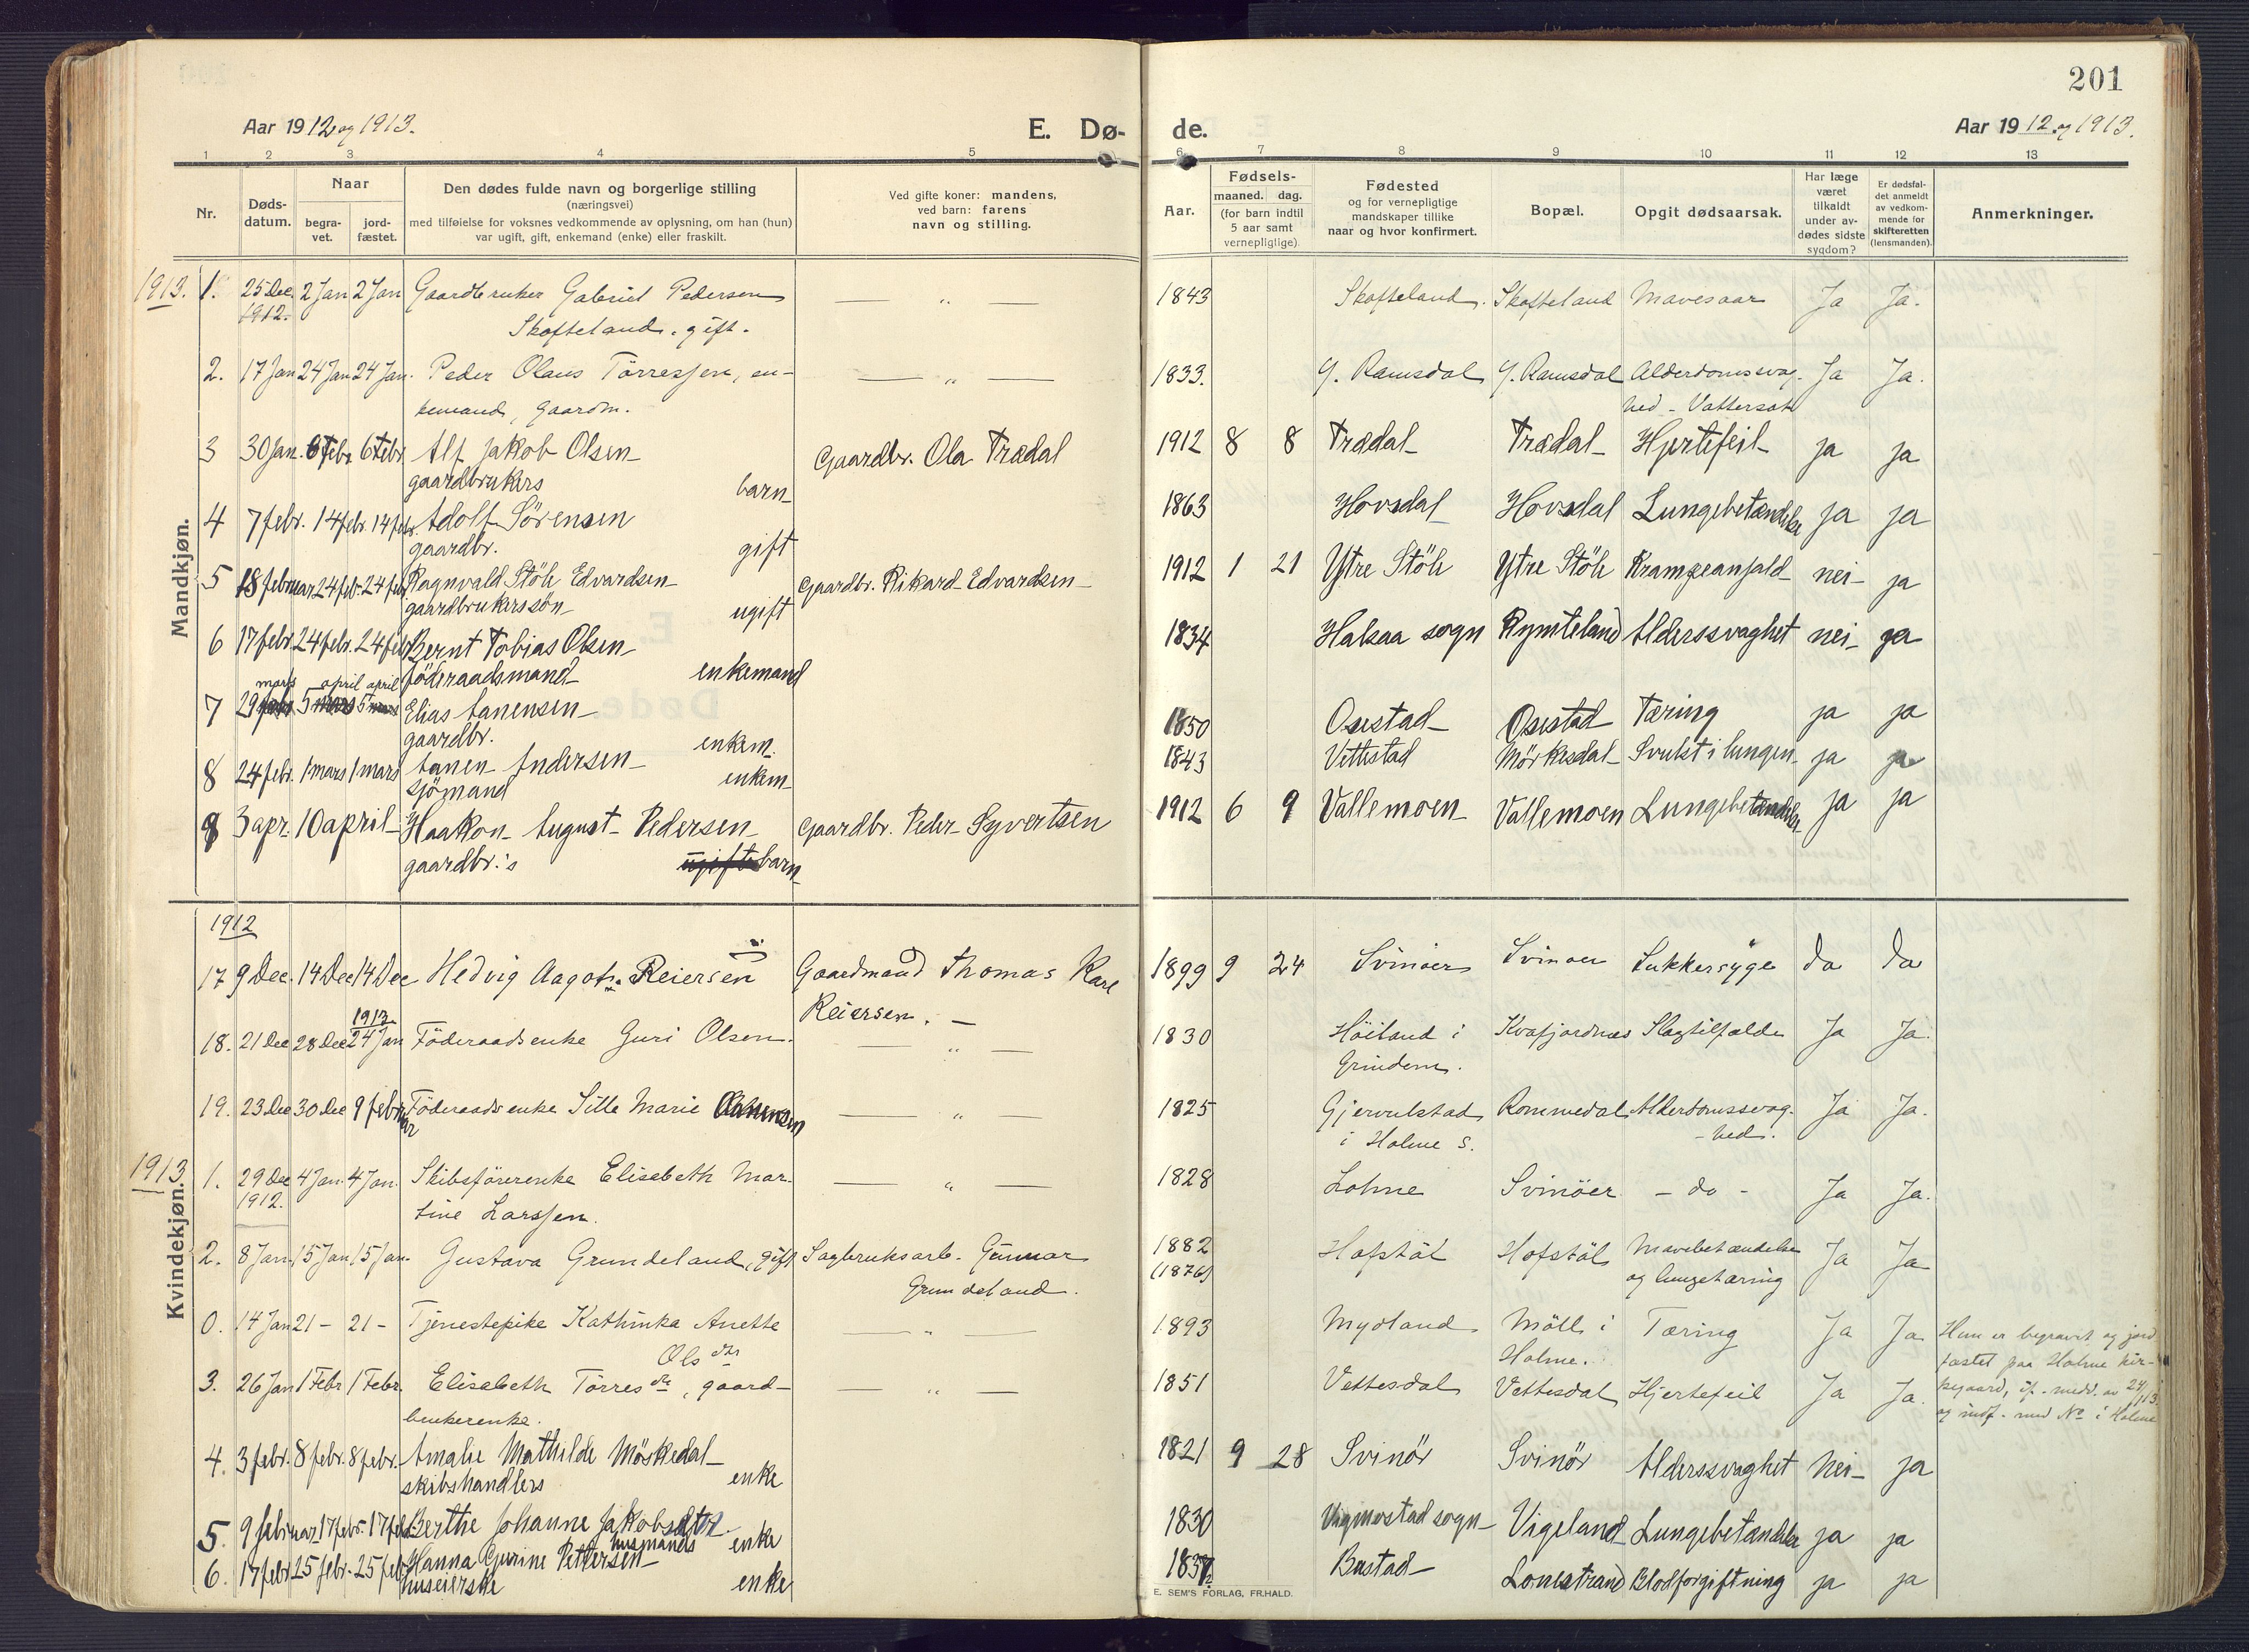 201
Aar 1912 og 1913.
E. Dø-
de.
Aar 1912 og 1913.
1 2 3 4 5 6 7 8 9 10 11 12 13
Nr.
Døds-
datum.
Naar
begra-
vet.
jord-
fæstet.
Den dødes fulde navn og borgerlige stilling
(næringsvei)
med tilføielse for voksnes vedkommende av oplysning, om han (hun)
var ugift, gift, enkemand (enke) eller fraskilt.
Ved gifte koner: mandens,
ved barn: farens
navn og stilling.
Aar.
Fødsels-
maaned. dag.
(for barn indtil
5 aar samt
vernepligtige)
Fødested
og for vernepligtige
mandskaper tillike
naar og hvor konfirmert.
Bopæl.
Opgit dødsaarsak.
Har læge
været
tilkaldt
under av-
dødes sidste
sygdom?
Er dødsfal-
det anmeldt
av vedkom-
mende for
skifteretten
(lensmanden).
Anmerkninger.
Mandkjøn.
1913. 1. 25 Dec. 2 Jan 2 Jan Gaardbruker Gabriel Pedersen — " — 1843 Skofteland. Skofteland Mavesaar Ja Ja.
1912. Skofteland. gift.
2. 17 Jan 24 Jan 24 Jan. Peder Olaus Törressen, en- — " — 1833. Y. Ramsdal Y. Ramsdal Alderdomssvag- Ja Ja.
kemand, gaardm. hed - Vattersot
3 30 Jan. 6 Febr. 6 Febr. Alf Jakob Olsen Gaardbr. Ola Trædal 1912 8 8 Trædal Trædal Hjertefeil ja ja
gaardbrukers barn
4 7 febr. 14 febr. 14 febr. Adolf Sörensen 1863 Hovsdal Hovsdal Lungebetændelse ja ja
gaardbr. gift
5 18 februar 24 febr. 24 febr. Ragnvald Stöle Edvardsen Gaardbr. Rikard Edvardsen 1912 1 21 Ytre Stöle Ytre Stöle Krampeanfald nei ja
gaardbrukerssön ugift
6 17 febr. 24 febr. 24 febr. Bernt Tobias Olsen 1834 Halsaa sogn Rymteland Alderssvaghet nei ja
föderaadsmand enkemand
mars april april
7 29 5 5 Elias Aanensen 1850 Osestad Osestad Tæring ja ja
gaardbr. enkem.
8 24 febr. 1 mars 1 mars Aanen Andersen 1843 Vettestad Mörkesdal Svulst i lungen ja ja
sjömand enkem
9 3 apr. 10 april Haakon August Pedersen Gaardbr. Peder Syvertsen 1912 6 9 Vallemoen Vallemoen Lungebetændelse ja ja
gaardbr.'s barn
Kvindekjøn.
1912
17 9 Dec. 14 Dec 14 Dec Hedvig Aagot Reiersen Gaardmand Thomas Karl 1899 9 24 Svinöer Svinöer Sukkersyge Ja Ja
Reiersen. —
1913
18. 21 Dec 28 Dec 24 Jan Föderaadsenke Guri Olsen. — " — 1830 Höiland i Kvafjordnes Slagtilfælde Ja Ja.
Grindem.
19. 23 Dec 30 Dec 9 februar Föderaadsenke Sille Marie — " — 1825 Gjervulstad Rommedal Alderdomssvag- Ja Ja.
i Holme S. -hed.
1913 1. 29 Dec 4 Jan. 4 Jan. Skibsförerenke Elisabeth Mar- — " — 1828 Lohne Svinöer - do - Ja Ja.
1912. tine Larssen.
2. 8 Jan. 15 Jan 15 Jan. Gustava Grundeland, gift Sagbruksarb. Gunnar 1882 Hofstöl Hofstöl Mavebetændelse Ja Ja
Grundeland. (1876) og lungetæring
0. 14 Jan 21 - 21 - Tjenestepike Kathinka Anette — " — 1893 Mydland Möll i Tæring Ja Ja Hun er begravet og jord
Olsdtr Holme. fæstet paa Holme kir-
3. 26 Jan 1 Febr 1 Febr. Elisabeth Törresdtr, gaard- — " — 1851 Vettesdal Vettesdal Hjertefeil Ja Ja. kegaard, if. medd. av 24/1 13
brukerenke. og indf. med No i Holme
4. 3 febr. 8 febr. 8 febr. Amalie Mathilde Möskedal 1821 9 28 Svinör Svinör Alderssvaghet Nei ja
skibshandlers enke
5. 9 februar 17 febr. 17 febr. Berthe Johanne Jakobsdtr. 1830 Vigmostad sogn Vigeland Lungebetændelse ja ja
husmands enke
6. 17 febr 25 febr. 25 febr. Hanna Gurine Pettersen 1837 Bustad Lonestrand Blodforgiftning ja ja
huseierske enke
E. SEM'S FORLAG, FR.HALD.